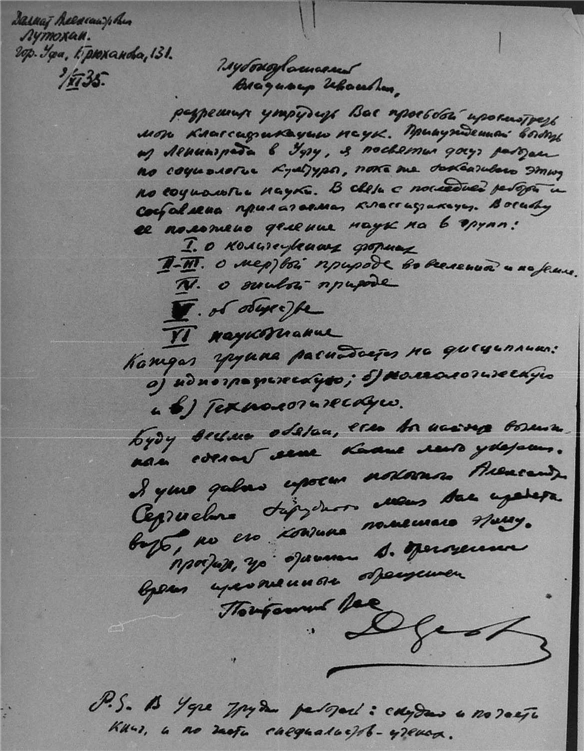 Далмат Александрович
Лутохин.
гор. Уфа, Брюханова, 131.
9/XI 35.
Глубокоуважаемый
Владимир Иванович,
разрешите утрудить Вас просьбой просмотреть
мою классификацию наук. Принужденный выехать
из Ленинграда в Уфу, я посвятил досуг работам
по социологии культуры, пока же заканчиваю этюд
по социологии науки. В связи с последней работой и
составлена прилагаемая классификация. В основу
ее положено деление наук на 6 групп:
I. о количественных формах
II-III. о мертвой природе во вселенной и на земле.
IV. о живой природе
V. об обществе
VI наукознание
Каждая группа распадается на дисциплины:
а) идиографическую; б) номологическую
и в) технологическую.
Буду весьма обязан, если Вы найдете возмож-
ным сделать мне какие либо указания.
Я уже давно просил покойного Александра
Сергеевича Зарудного меня Вам представить,
но его кончина помешала этому.
Простите, что отнимаю В. драгоценное
время настоящим обращением
Почитающий Вас
P.S. В Уфе трудно работать: скудно и по части
книг, и по части специалистов-ученых.